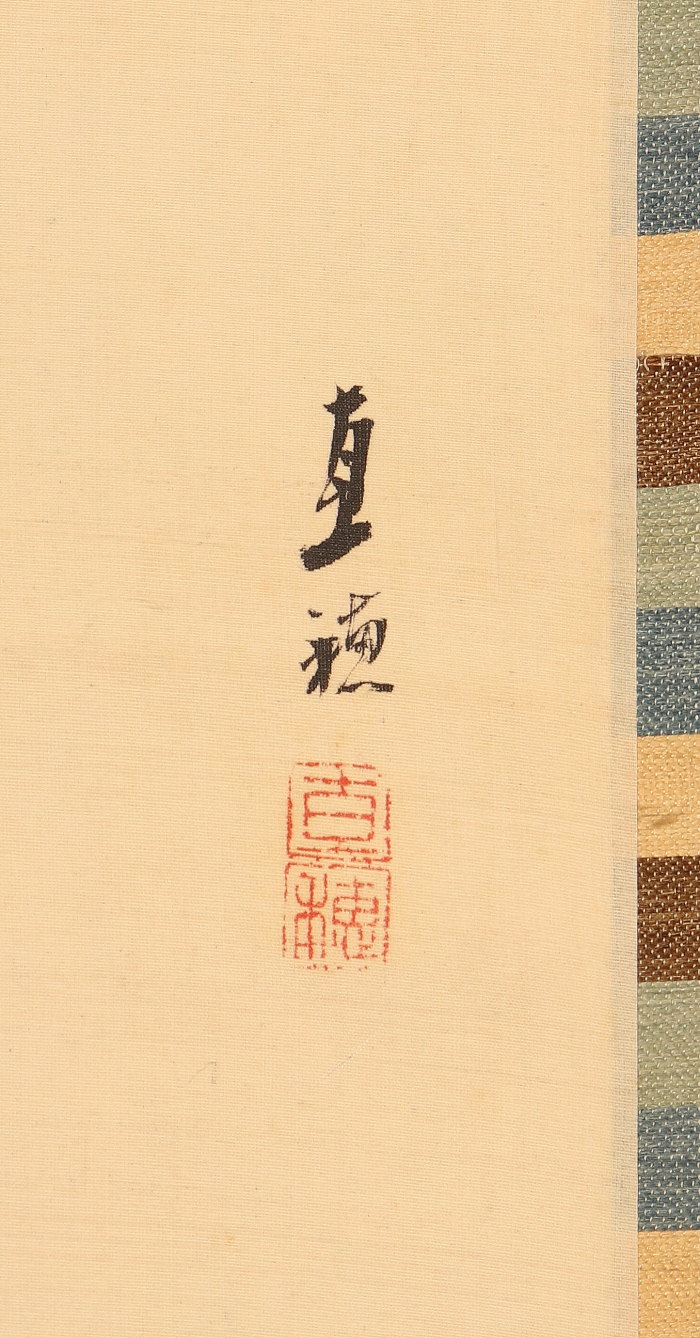 直穂
直穂